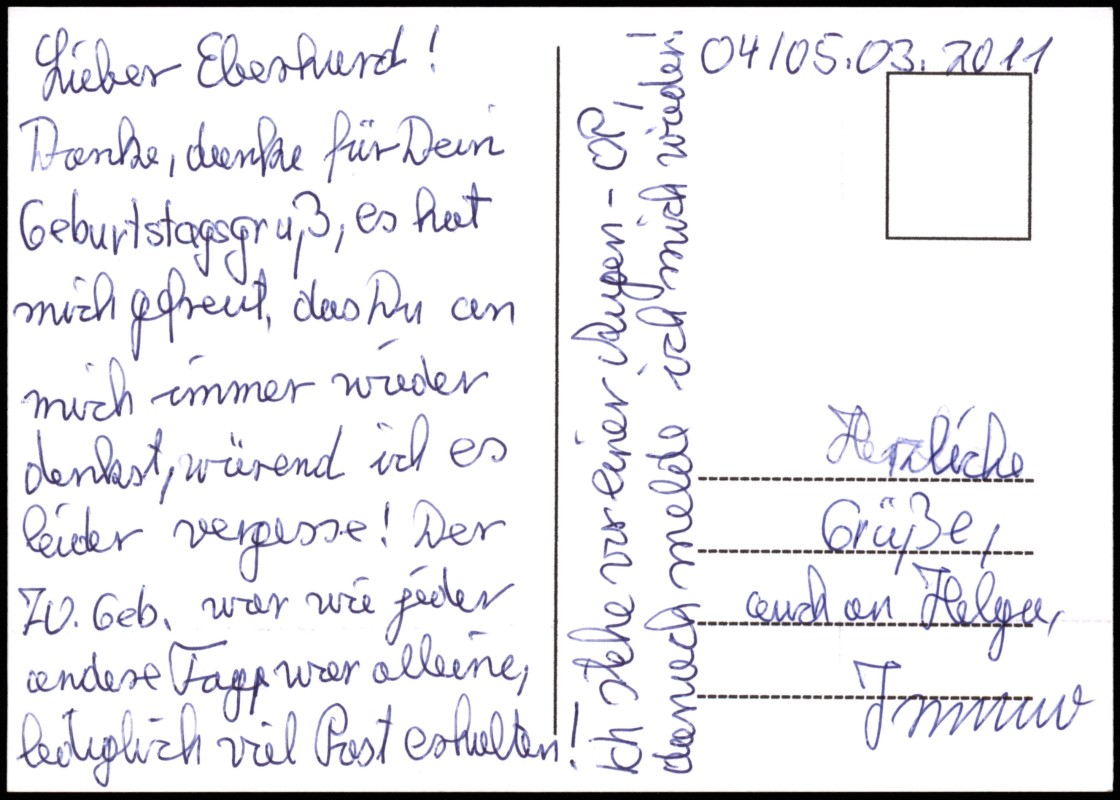 04/05.03.2011
Lieber Eberhard!
Danke, danke für Dein
Geburtstagsgruß, es hat
mich gefreut, das Du an
mich immer wieder
denkst, wärend ich es
leider vergesse! Der
70. Geb. war wie jeder
andere Tag, war alleine,
lediglich viel Post erhalten!
Ich stehe vor einer Augen-OP,
danach melde ich mich wieder!
Herzliche
Grüße,
auch an Helga,